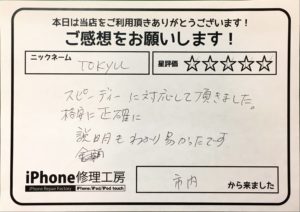 本日は当店をご利用頂きありがとうございます！
ご感想をお願いします！
ニックネーム TOKYU 星評価 ☆☆☆☆☆
スピーディーに対応して頂きました。
格安に正確に
説明もわかり易かったです
iPhone修理工房
iPhone Repair Factory iPhone/iPad/iPod touch
市内 から来ました